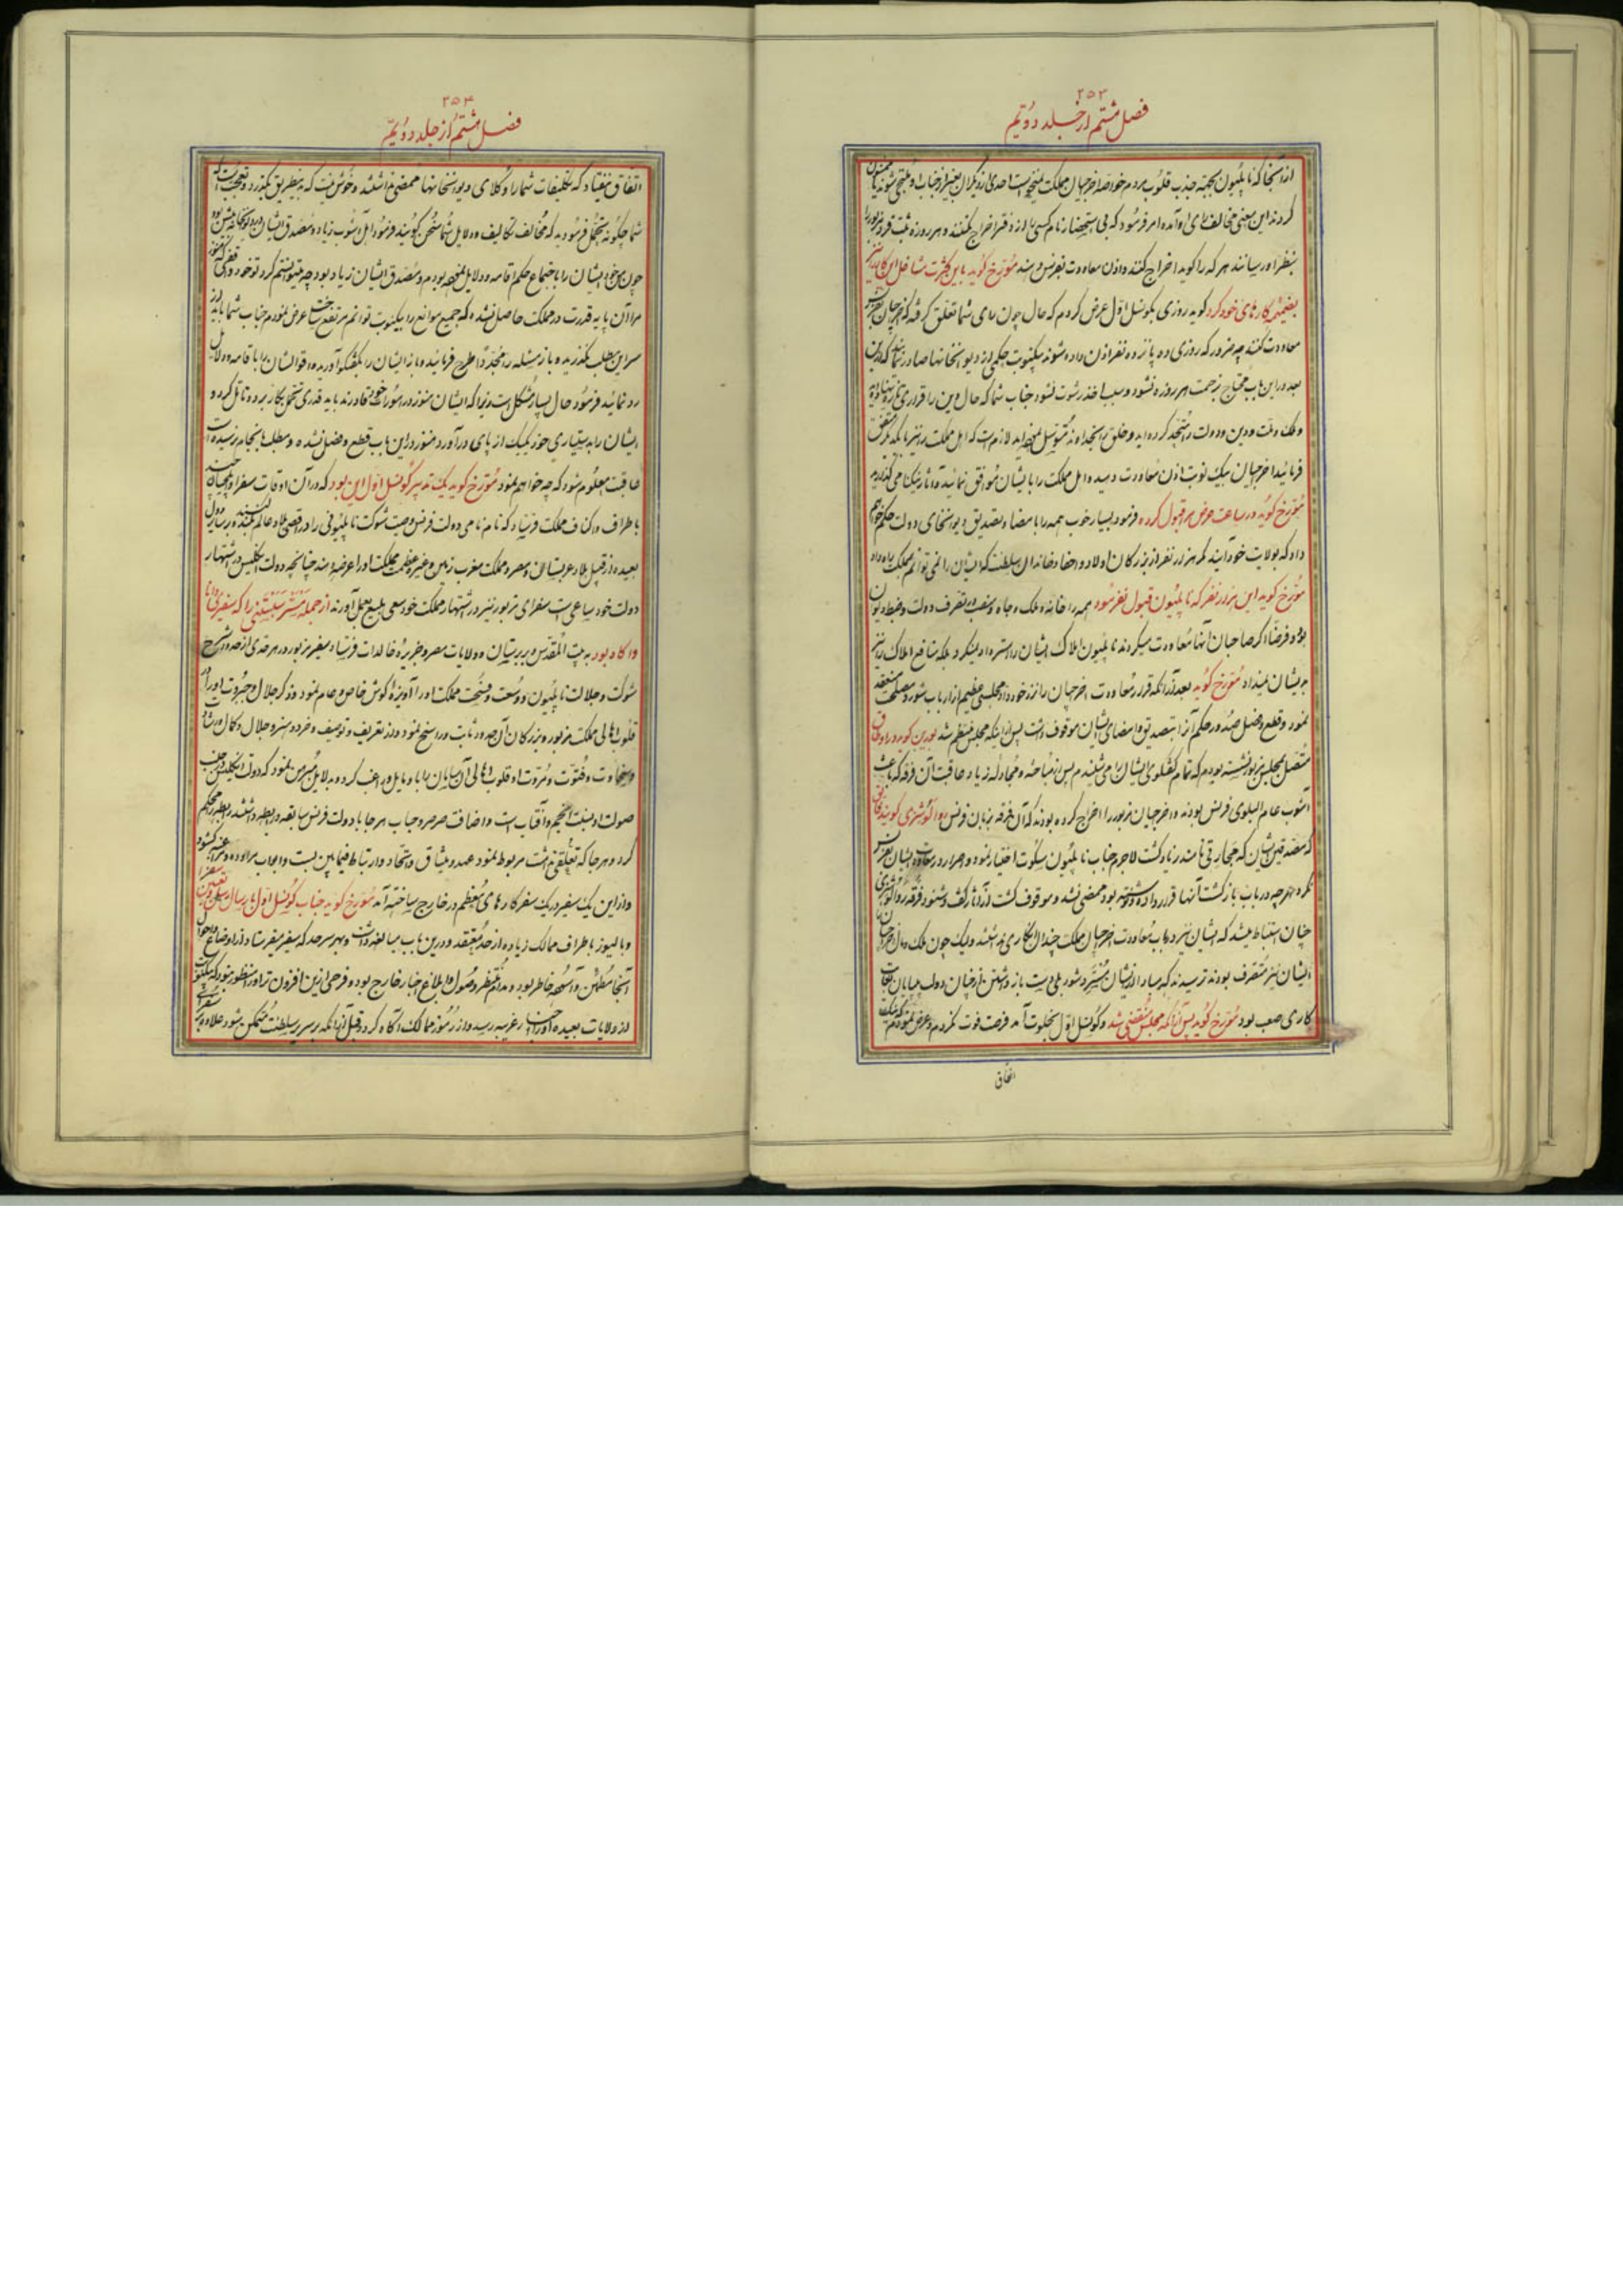 ۲۵۳
فصل هشتم از جلد دویم
از آنجا که ناپلیون بجهة جذب قلوب مردم خود اخرجیان مملکت احدی از دیگران بغیر از جناب او ملتجی شوند
کردند این معنی مخالف رای او آمده امر فرمود که بی استحضار نام کسی را از دفتر اخراج نکنند و هر روزه ثبت
بنظر او رسانند هر که را گوید اخراج کنند و اذن معاودت بفرنس دهند مورخ گوید باین کثرت مشاغل این کار را نیز
بضمیمه کارهای خود کرد گوید روزی بکونسل اول عرض کردم که حال چون رای شما تعلق گرفته که اخرجیان بفرنس
معاودت کنند چه ضرور که روزی ده پانزده نفر اذن داده شوند بیکنوبت حکمی از دیوانخانها صادر نمائید که
بعد در این باب محتاج زحمت هر روزه نشود و سبب اخذ رشوت نشود جناب شما که حال دین را قراری تازه
و ملک و ملت و دین و دولت را متحد کرده اید و خلق را بخداوند متوسل لازم است که اهل مملکت را نیز با یکدیگر متفق
فرمائید اخرجیان بیک نوبت اذن معاودت دهید و اهل مملکت را با ایشان موافق نمائید تا آثار نیکنامی گذارید
مورخ گوید در ساعت عرض مرا قبول کرده فرمود بسیار خوب همه را بامضا و تصدیق دیوانخانهای دولت حکم خواهم
داد که بولایت خود آیند مگر هزار نفر از بزرکان اولاد و احفاد خاندان سلطنت که ایشان را نمی توانم بمملکت راه داد
مورخ گوید این هزار نفر که ناپلیون قبول نفرمود همه را خانه و ملک و جاه و منصب در تصرف دولت و ضبط دیوان
بود و فرضا اگر صاحبان آنها معاودت میکردند ناپلیون املاک ایشان را مسترد نمیکرد بلکه منافع املاک را نیز
بایشان نمیداد مورخ گوید بعد از آنکه قرار معاودت اخرجیان را نزد خود داد مجلسی عظیم از ارباب شور و مصلحت منعقد
نمود و قطع و فصل صدور حکم آنرا بتصدیق و امضای ایشان موقوف داشت پس از اینکه مجلس منتظم شد بورین گوید در اوطاق
متصل بمجلس مزبور نشسته بودم که تمام گفتگوی ایشان را می شنیدم پس از مباحثه و مجادله زیاد عاقبت آن فرقه که باعث
آشوب عام و البلوی فرنس بودند و اخرجیان مزبور را اخراج کرده بودند که آن فرقه بزبان فرنس گویند
که مصدقین ایشان که زیاد گشت لاجرم جناب ناپلیون سکوت اختیار نمود و اصرار در معاودت ایشان بفرنس
نکرد و هر چه در باب بازگشت آنها قرارداده و نوشته بود ممضی نشد و موقوف گشت از آثار کشف و شنود
چنان استنباط میشد که ایشان نیز در باب معاودت اخرجیان مملکت چندان انکاری نداشتند و لیک چون ملک و مال
ایشان را نیز متصرف بودند ترسیدند که مبادا از ایشان مسترد شود بلی دست باز داشتن از چنان دولت بی پایان بغایت
کاری صعب بود مورخ گوید پس از آنکه مجلس منقضی شد و کونسل اول بخلوت آمد فرصت فوت نکردم و عرض نمودم
اتفاق
۲۵۴
فصل هشتم از جلد دویم
اتفاق نیفتاد که تکلیفات شما را وکلای دیوانخانها ممضی نداشتند و خوش نیست که بدینطریق بگذرد و تعجب است
شما چگونه تحمل فرمودید که مخالف تکالیف و دلایل شما سخن گویند فرمود اهل آشوب زیاد و مصدق ایشان
چون من خود ایشان را باجتماع حکم اقامه و دلایل نموده بودم و مصدق ایشان زیاد بود چه میتوانستم کرد تو خود واقفی که هنوز
مرا آن پایه قدرت در مملکت حاصل نشده که جمیع موانع را بیکنوبت توانم مرتفع ساخت عرض نمودم جناب شما باید از
سر این مطلب بگذرید و باز مسئله را مجددا طرح فرمائید و باز ایشان را بگفتگو آورید و اقوال ایشان را باقامه دلایل
رد نمائید فرمود حال بسیار مشکل است زیرا که ایشان هنوز در امورات خود قادرند باید قدری تحمل بکار برده و تامل کرد و
ایشان را بدستیاری خود یک یک از پای درآورد هنوز در این باب قطع و فصل نشده و مطلب بانجام نرسیده است
عاقبت معلوم شود که چه خواهم نمود مورخ گوید یک تدبیر کونسل اول این بود که در آن اوقات سفرا و ایلچیان
باطراف و اکناف مملکت فرستاد که نام نامی دولت فرنس و صیت شوکت ناپلیونی را در اقصی بلاد عالم بلند سازند
بعیده از قبیل بلاد عربستان و مصر و مملکت مغرب زمین و غیره عظمت مملکت او را عرضه دهند چنانچه دولت انگلیس در اشتهار
دولت خود ساعی است سفرای مزبور نیز در اشتهار مملکت خود سعی بلیغ بعمل آورند از جمله را که سفیری دانا
و آگاه بود به بیت المقدس و بربرستان و ولایات مصر و جزیره خالدات فرستاد سفیر مزبور در هر حدی از حدود شرح
شوکت و جلالت ناپلیون و وسعت و فسحت مملکت او را آویزه گوش خاص و عام نمود و ذکر جلال و جبروت او را در
قلوب اهالی مملکت مزبور و بزرکان آن حدود ثابت و راسخ نمود و از تعریف و توصیف و خرد و هنر و جلال و کمال
و سخاوت و فتوت و مروت او قلوب اهالی آن سامان را باو مایل و راغب کرد و بدلایل مبرهن نمود که دولت انگلیس
صولت او نسبت انجم و آفتاب است و اضافت صرصر و حباب هر جا با دولت فرنس سابقه و رابطه داشتند رابطه را محکم
کرد و هر جا که تعلقی نداشت مربوط نمود عهد و میثاق و اتحاد و ارتباط فیمابین بست و ابواب مراوده و مراجعه گشود
و از این یک سفیر در یک سفر کارهای معظم در خارج ساخته آمد مورخ گوید جناب کونسل اول بارسال سفرا و تعیین
و بالیوز باطراف ممالک زیاده از حد معتقد و در این باب مبالغه داشت و بهر سرحد که سفیر میفرستاد از اوضاع و احوال
آنجا مطمئن و آسوده خاطر بود و مدام منتظر وصول و ابلاغ اخبار خارج بود و فرحی از این افزون تر او را منظور نبود که
از ولایات بعیده او را اخبار غریبه رسید و از رموز ممالک آگاه گردد قبل از آنکه بر سریر سلطنت متمکن شود علاوه بر